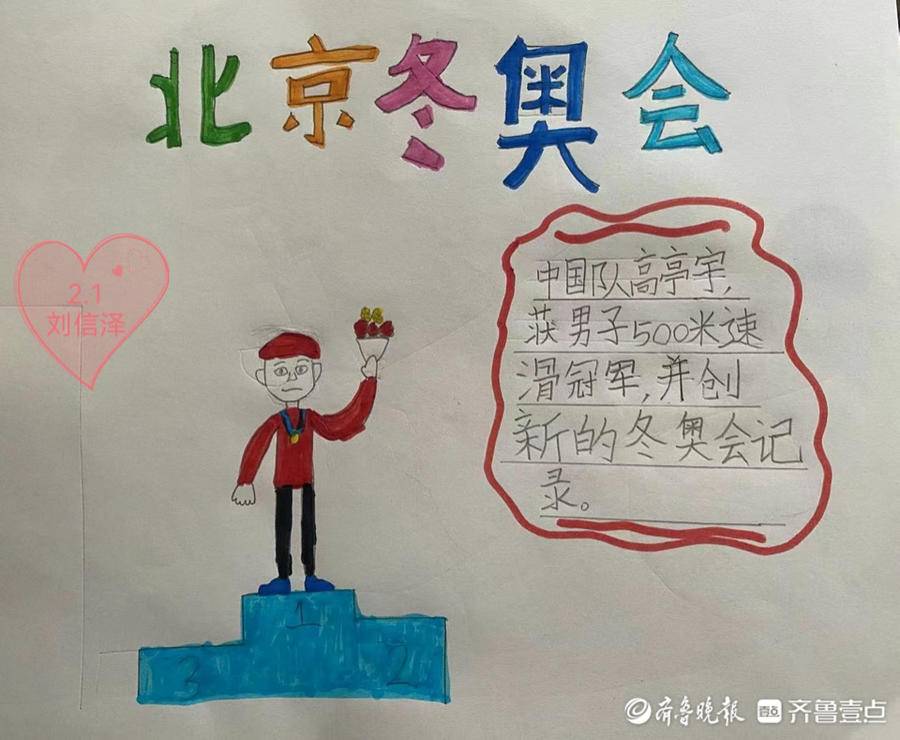 北京冬奥会
2.1
刘信泽
中国队高亭宇,
获男子500米速
滑冠军,并创
新的冬奥会记
录。
1
3
2
齐鲁晚报 壹点 齐鲁壹点